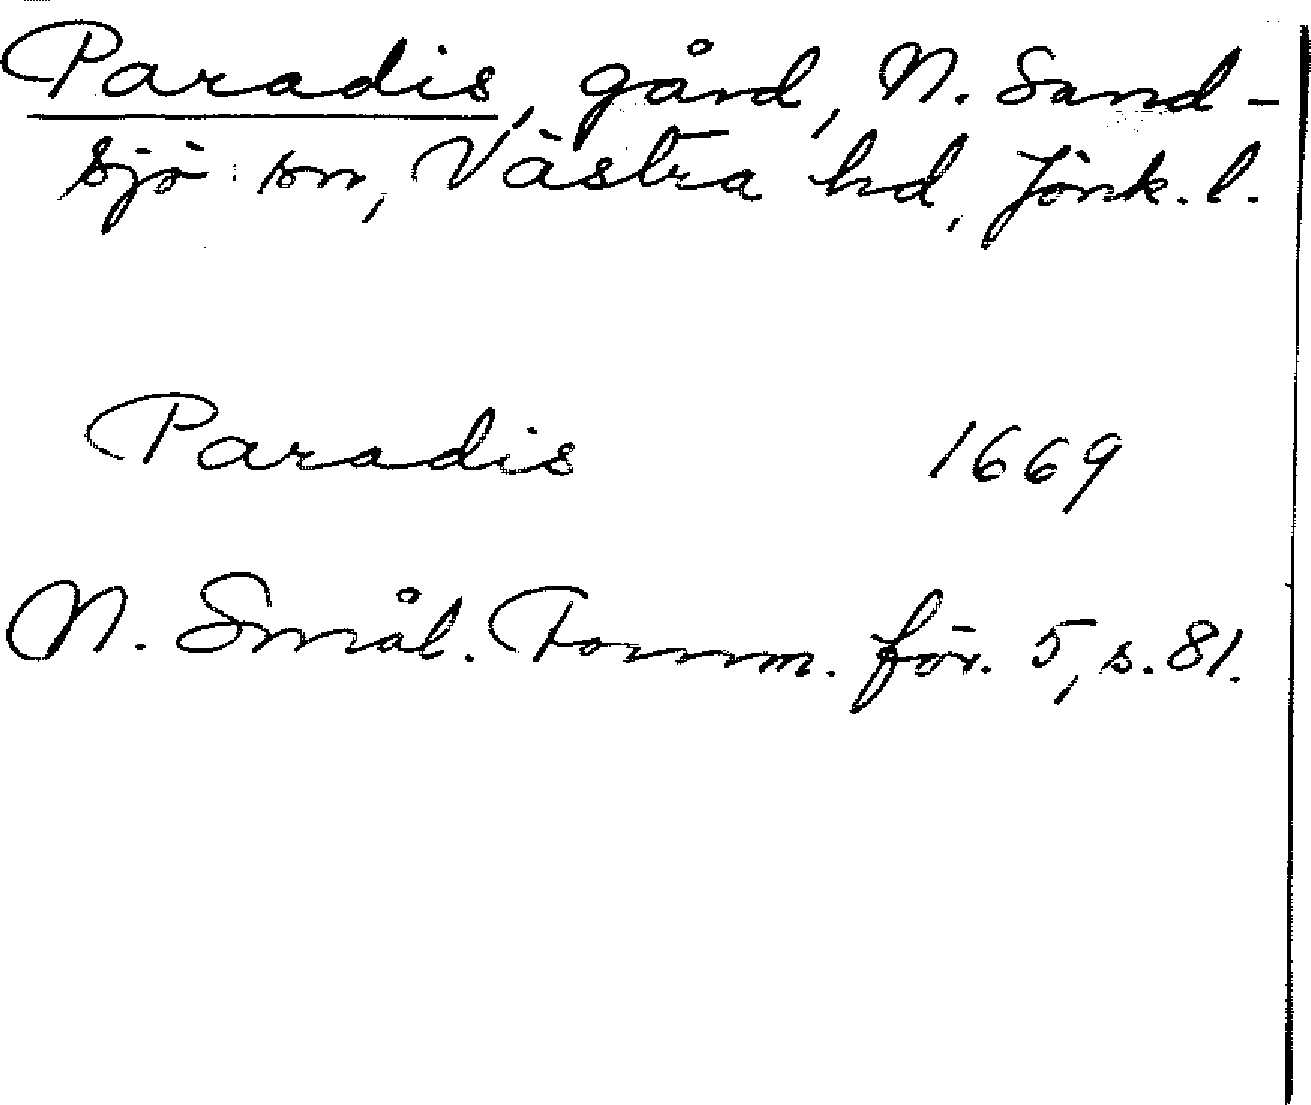 Paradis, gård, N. Sand-
sjö sn, Västra hd, Jönk. l.
Paradis 1669
N. Smål. Fornm. för. 5, s. 81.